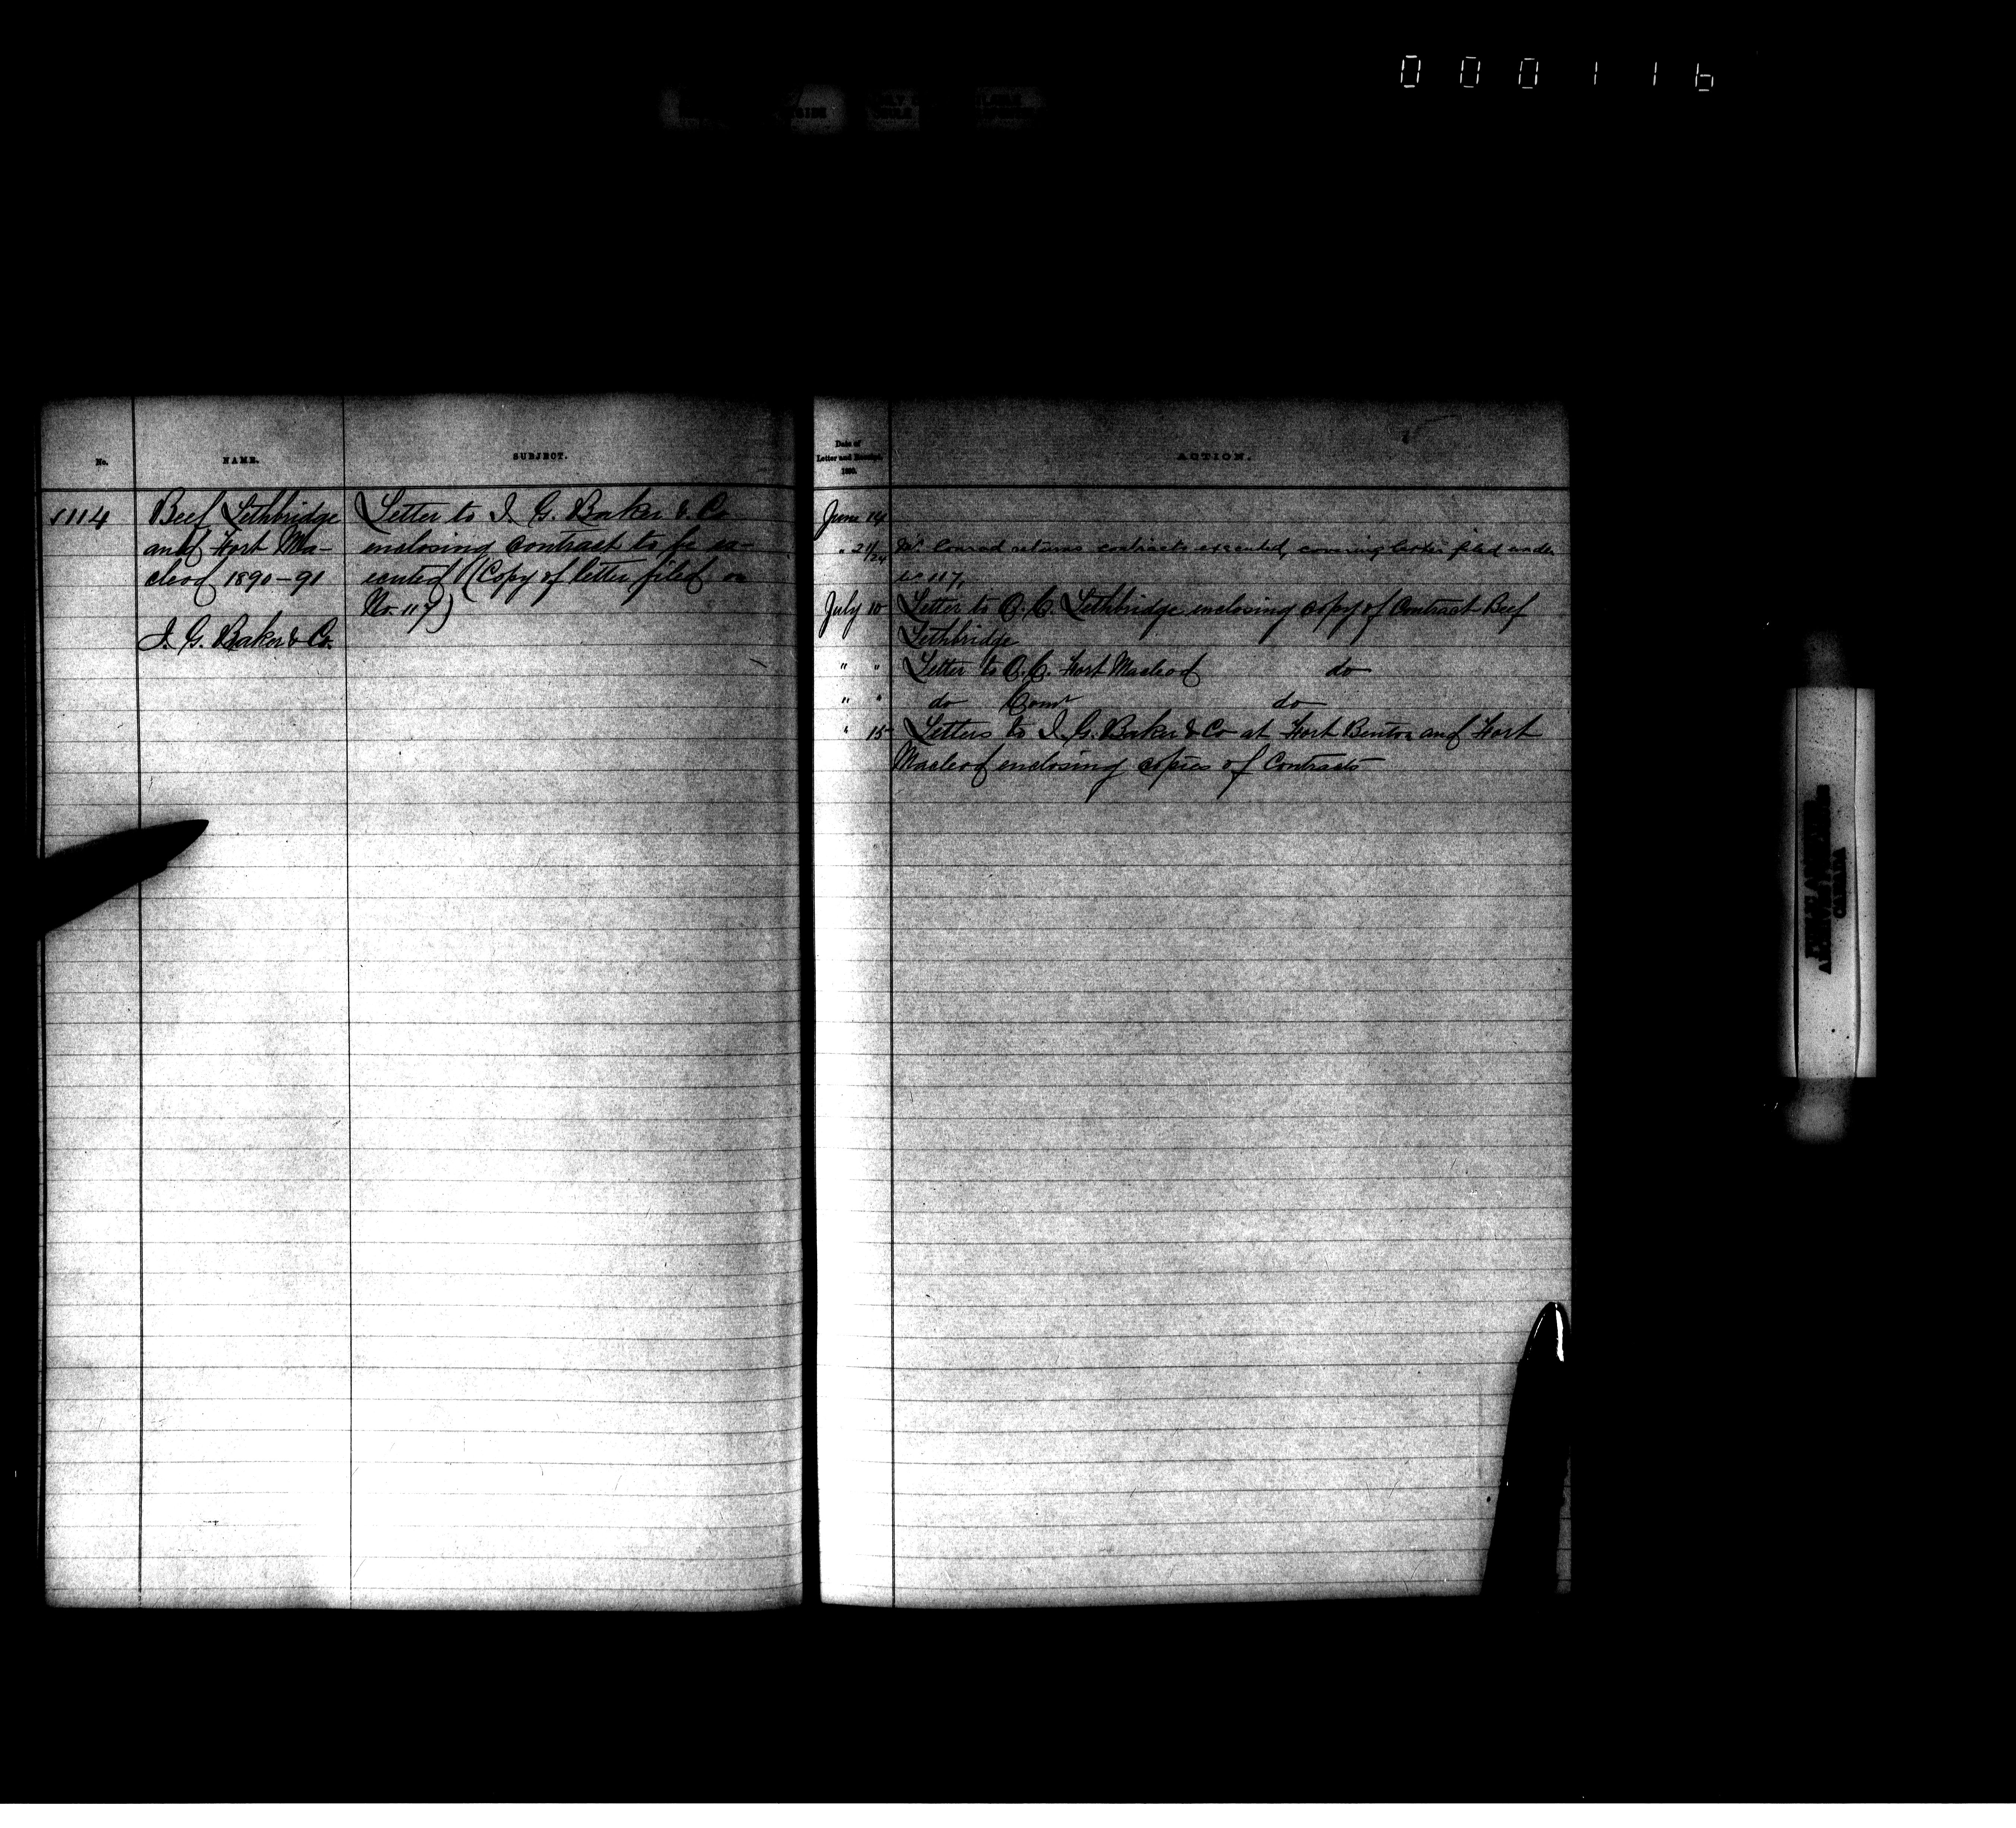 000116
No.
NAME.
SUBJECT.
114
Beef Lethbridge
and Fort Ma-
cleod 1890-91
I. G. Baker & Co.
Letter to I. G. Baker & Co
enclosing contract to be ex-
ecuted (Copy of letter filed on
No. 117)
Date of
Letter and Receipt.
1890.
ACTION.
June 14
" 21/24 Mr. Conrad returns contracts executed, covering letter filed under
no 117.
July 10 Letter to O. C. Lethbridge enclosing copy of Contract Beef
Lethbridge
" " Letter to O. C. Fort Macleod do
" " do Comr do
" 15 Letters to I. G. Baker & Co at Fort Benton and Fort
Macleod enclosing copies of Contracts